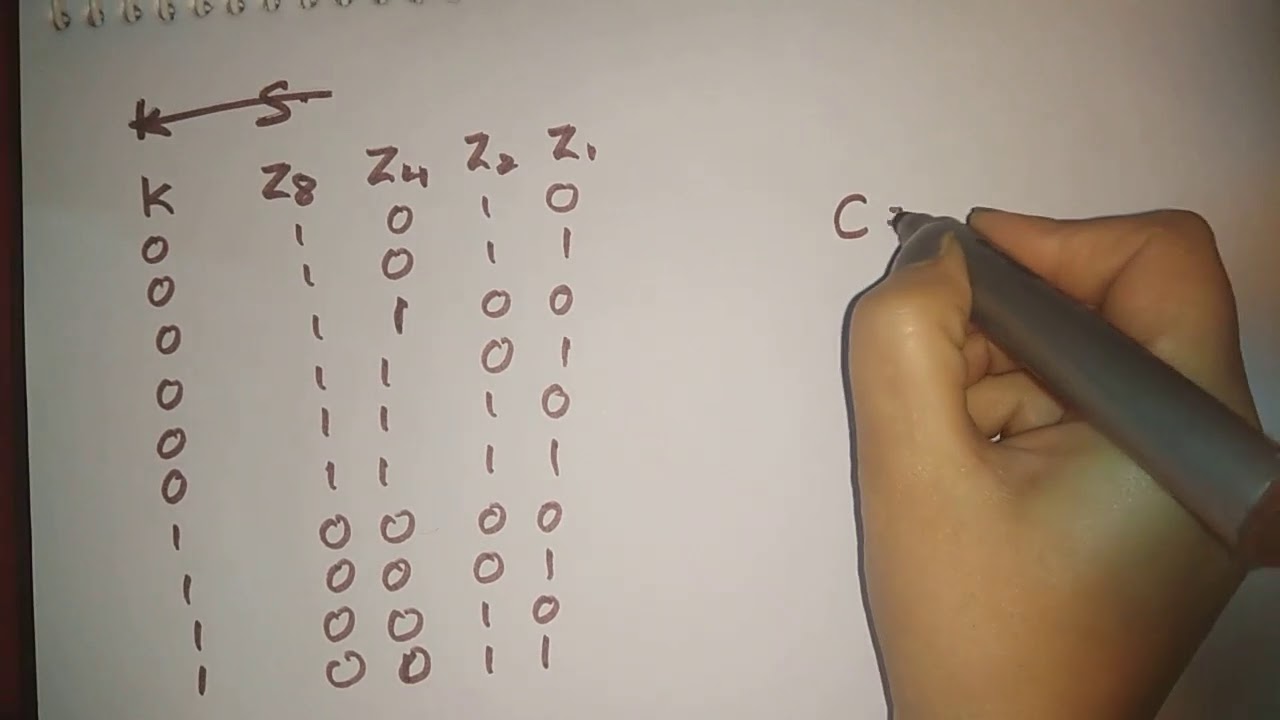 K S
K Z8 Z4 Z2 Z1
0 1 0 1 0
0 1 0 1 1
0 1 1 0 0
0 1 1 0 1
0 1 1 1 0
0 1 1 1 1
1 0 0 0 0
1 0 0 0 1
1 0 0 1 0
1 0 0 1 1
C